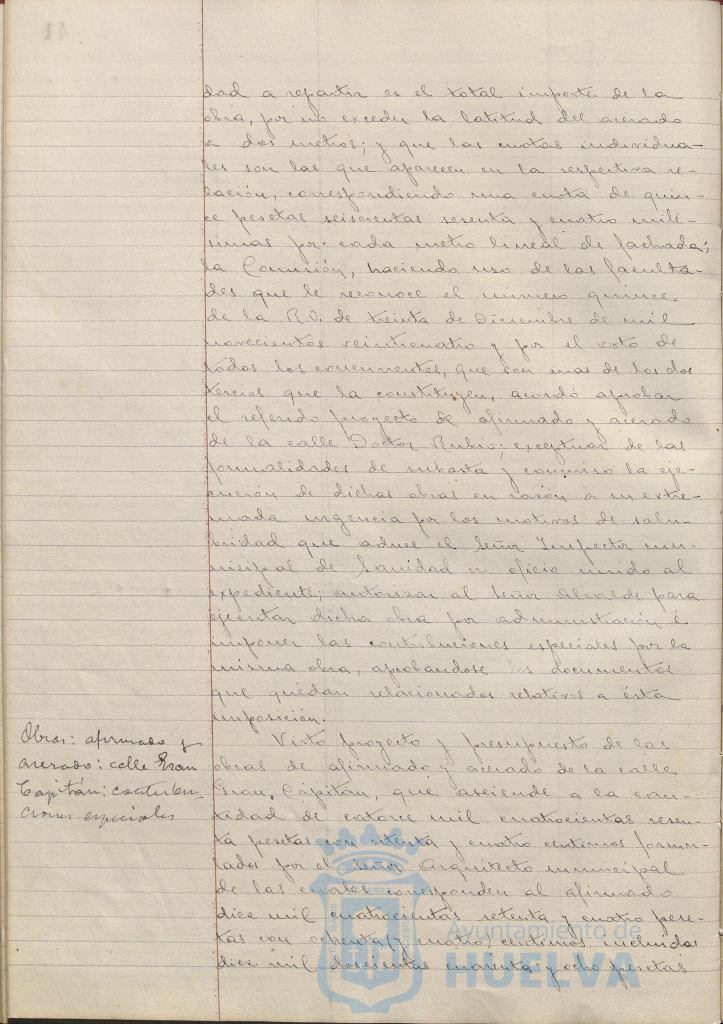 dad a repartir es el total importe de la
obra, por no exceder la latitud del acerado
a dos metros; y que las cuotas individua-
les son las que aparecen en la respectiva re-
lación, correspondiendo una cuota de quin-
ce pesetas seiscientas sesenta y cuatro milé-
simas por cada metro lineal de fachada;
la Comisión, haciendo uso de las faculta-
des que le reconoce el número quince
de la R.O. de treinta de Diciembre de mil
novecientos veinticuatro y por el voto de
todos los concurrentes, que son mas de los dos
tercios que la constituyen, acordó aprobar
el referido proyecto de afirmado y acerado
de la calle Doctor Rubio; exceptuar de las
formalidades de subasta y concurso la eje-
cución de dichas obras en razón a su extre-
mada urgencia por los motivos de salu-
bridad que aduce el Señor Inspector mu-
nicipal de Sanidad en oficio unido al
expediente; autorizar al Señor Alcalde para
ejecutar dicha obra por administración é
imponer las contribuciones especiales por la
misma obra, aprobandose los documentos
que quedan relacionados relativos a ésta
imposición.
Obras: afirmado y
acerado: calle Gran
Capitán; contribu-
ciones especiales
Visto proyecto y presupuesto de las
obras de afirmado y acerado de la calle
Gran Capitán, que asciende a la can-
tidad de catorce mil cuatrocientas sesen-
ta pesetas con setenta y cuatro centimos formu-
lados por el Señor Arquitecto municipal
de las cuales corresponden al afirmado
diez mil cuatrocientas setenta y cuatro pese-
tas con ochenta (y cuatro) centimos, incluidas
diez mil doscientas cuarenta y ocho pesetas
Ayuntamiento de
HUELVA